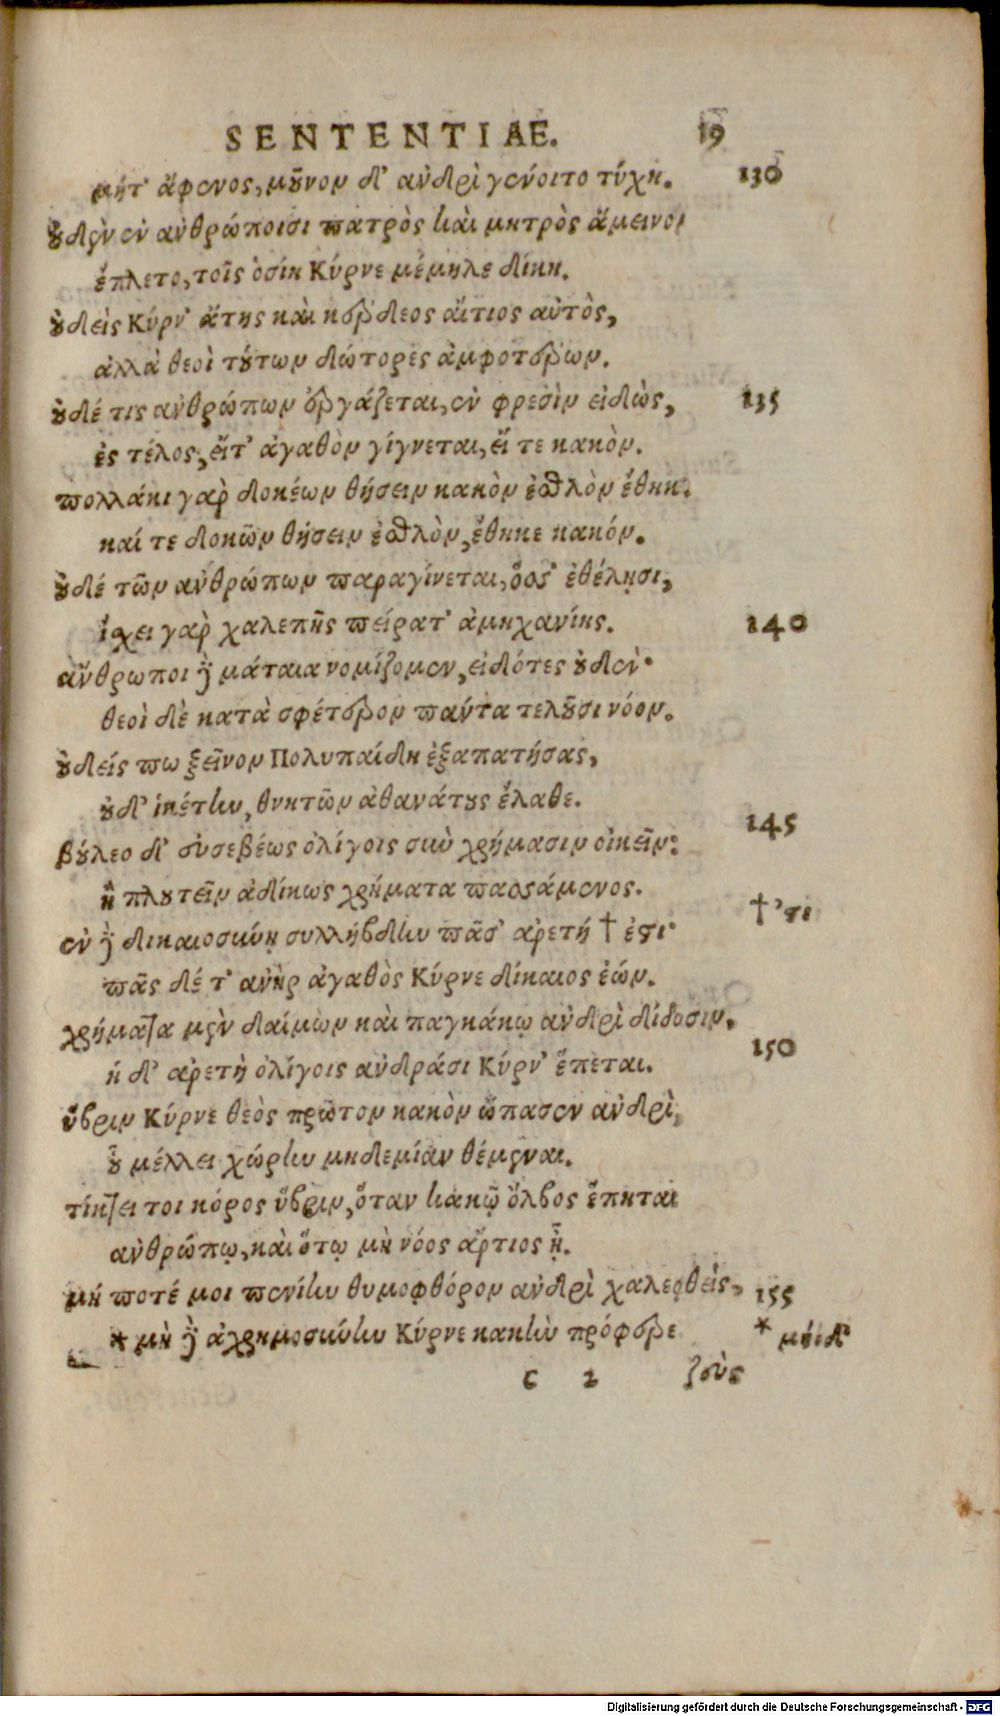 SENTENTIAE. 19
μήτ' ἄφενος, μοῦνον δ' ἀνδρὶ γένοιτο τύχη. 130
οὐδὲν ἐν ἀνθρώποισι πατρὸς καὶ μητρὸς ἄμεινον
ἔπλετο, τοῖς ὁσίη Κύρνε μέμηλε δίκη.
οὐδεὶς Κύρν' ἄτης καὶ κέρδεος αἴτιος αὐτὸς,
ἀλλὰ θεοὶ τούτων δώτορες ἀμφοτέρων.
οὐδέ τις ἀνθρώπων ἐργάζεται, ἐν φρεσὶν εἰδὼς, 135
ἐς τέλος, εἴτ' ἀγαθὸν γίγνεται, εἴ τε κακὸν.
πολλάκι γὰρ δοκέων θήσειν κακὸν ἐσθλὸν ἔθηκε.
καί τε δοκῶν θήσειν ἐσθλὸν, ἔθηκε κακόν.
οὐδέ τῶν ἀνθρώπων παραγίνεται, ὅσσ' ἐθέλῃσι,
ἴσχει γὰρ χαλεπῆς πείρατ' ἀμηχανίης. 140
ἄνθρωποι δὲ μάταια νομίζομεν, εἰδότες οὐδέν·
θεοὶ δὲ κατὰ σφέτερον πάντα τελοῦσι νόον.
οὐδείς πω ξεῖνον Πολυπαίδη ἐξαπατήσας,
οὐδ' ἱκέτην, θνητῶν ἀθανάτους ἔλαθε.
βούλεο δ' εὐσεβέως ὀλίγοις σὺν χρήμασιν οἰκεῖν: 145
ἢ πλουτεῖν ἀδίκως χρήματα πασσάμενος.
ἐν δὲ δικαιοσύνῃ συλλήβδην πᾶσ' ἀρετή † ἐστι· † 'στι
πᾶς δέ τ' ἀνὴρ ἀγαθὸς Κύρνε δίκαιος ἐών.
χρήματα μὲν δαίμων καὶ παγκάκῳ ἀνδρὶ δίδοσιν.
ἡ δ' ἀρετὴ ὀλίγοις ἀνδράσι Κύρν' ἕπεται. 150
ὕβριν Κύρνε θεὸς πρῶτον κακὸν ὤπασεν ἀνδρὶ,
οὗ μέλλει χώρην μηδεμίαν θέμεναι.
τίκτει τοι κόρος ὕβριν, ὅταν κακῷ ὄλβος ἕπηται
ἀνθρώπῳ, καὶ ὅτῳ μὴ νόος ἄρτιος ᾖ.
μή ποτέ μοι πενίην θυμοφθόρον ἀνδρὶ χαλεφθεὶς, 155
* μὴ δὲ ἀχρημοσύνην Κύρνε κακὴν πρόφερε * μήδ'
c 2 ζεὺς
Digitalisierung gefördert durch die Deutsche Forschungsgemeinschaft - DFG